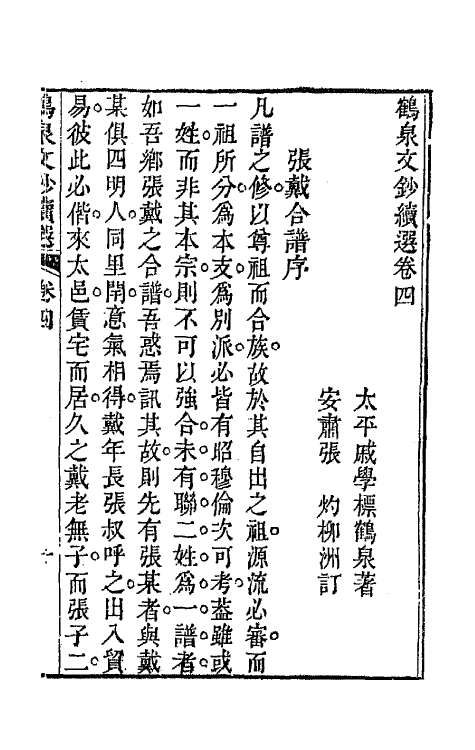 鶴泉文鈔續選卷四
太平戚學標鶴泉著
安肅張　灼柳洲訂
張戴合譜序
凡譜之修以尊祖而合族故於其自出之祖源流必審而
一祖所分爲本支爲別派必皆有昭穆倫次可考葢雖或
一姓而非其本宗則不可以強合未有聯二姓爲一譜者
如吾鄉張戴之合譜吾惑焉訊其故則先有張某者與戴
某俱四明人同里閈意氣相得戴年長張叔呼之出入貿
易彼此必偕來太邑賃宅而居久之戴老無子而張子二
鶴泉文鈔續選　卷四